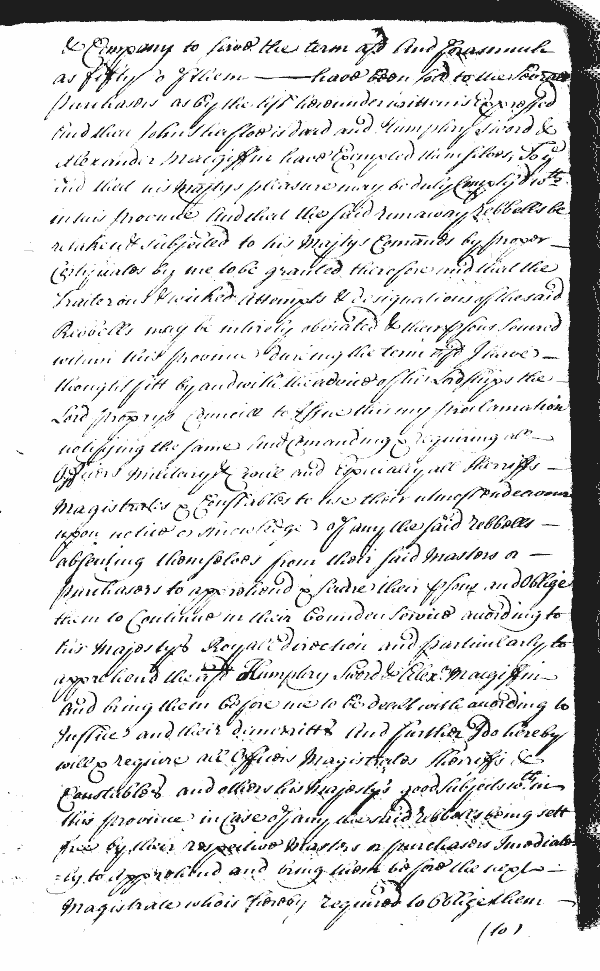 & Company to serve the term afsd And Forasmuch
as fifty & of them have been sold to the several
purchasers as by the list hereunder written is Expressed
And that John Shaftoe is dead and Humphry Sword &
Alexander Macgiffin have Exempted themselves, To ye
end that his Majtys pleasure may be duly Complyd wth
in this Province And that the said runaway Rebbells be
retaken & subjected to his Majtys Comands by proper
Certificates by me to be granted therefore and that the
Traiterous & wicked Attempts & designations of the said
Rebbells may be intirely obviated & their psons secured
within this province during the term afsd I have
thought fitt by and with the advice of his Lordships the
Lord propryrs Councill to Issue this my proclamation
notifying the same And Comanding & requiring all
Officers Military & Civil and Especially all Sherriffs
Magistrates & Constables to use their utmost endeavours
upon notice or knowledge of any the said Rebbells
absenting themselves from their said Masters or
purchasers to apprehend & secure their psons and Oblige
them to Continue in their bounden Service according to
his Majesty's Royall direction and particularly to
apprehend the afsd Humphry Sword & Alexr Macgiffin
and bring them before me to be dealt with according to
Justice and their demerritts And further I do hereby
will & require all Officers Magistrates Sherriffs &
Constables and others his Majesty's good subjects wth in
this province in Case of any the said rebbells being sett
free by their respective Masters or purchasers Imediate
=ly to apprehend and bring them before the next
Magistrate who is hereby required to Oblige them
(to)